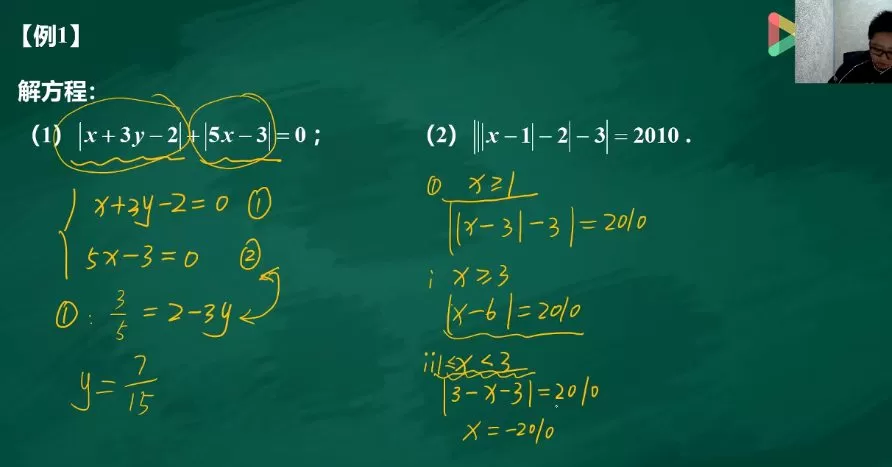 【例1】
解方程：
（1）|x+3y−2|+|5x−3|=0；
x+3y−2=0 ①
5x−3=0 ②
①: 3/5 = 2−3y
y = 7/15
（2）|||x−1|−2|−3|=2010．
① x≥1
||x−3|−3|=2010
i x≥3
|x−6|=2010
ii 1≤x<3
|3−x−3|=2010
x=−2010